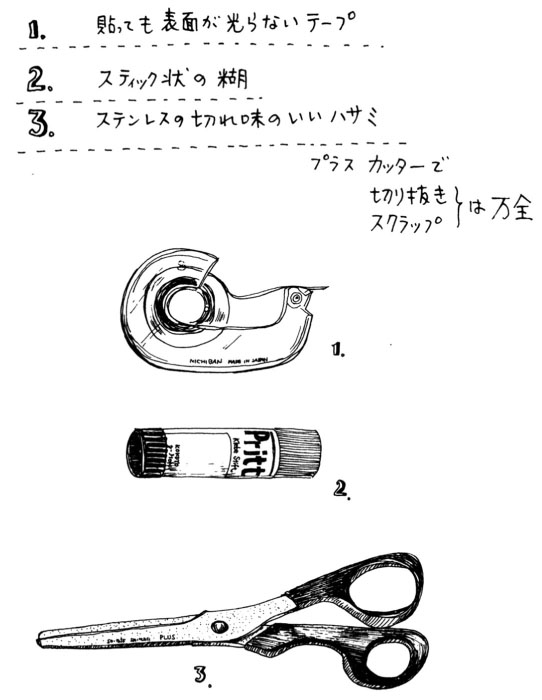 1. 貼っても表面が光らないテープ
2. スティック状の糊
3. ステンレスの切れ味のいいハサミ
プラス カッターで
切り抜き
スクラップ
は万全
NICHIBAN MADE IN JAPAN
1.
Pritt
2.
PLUS
3.